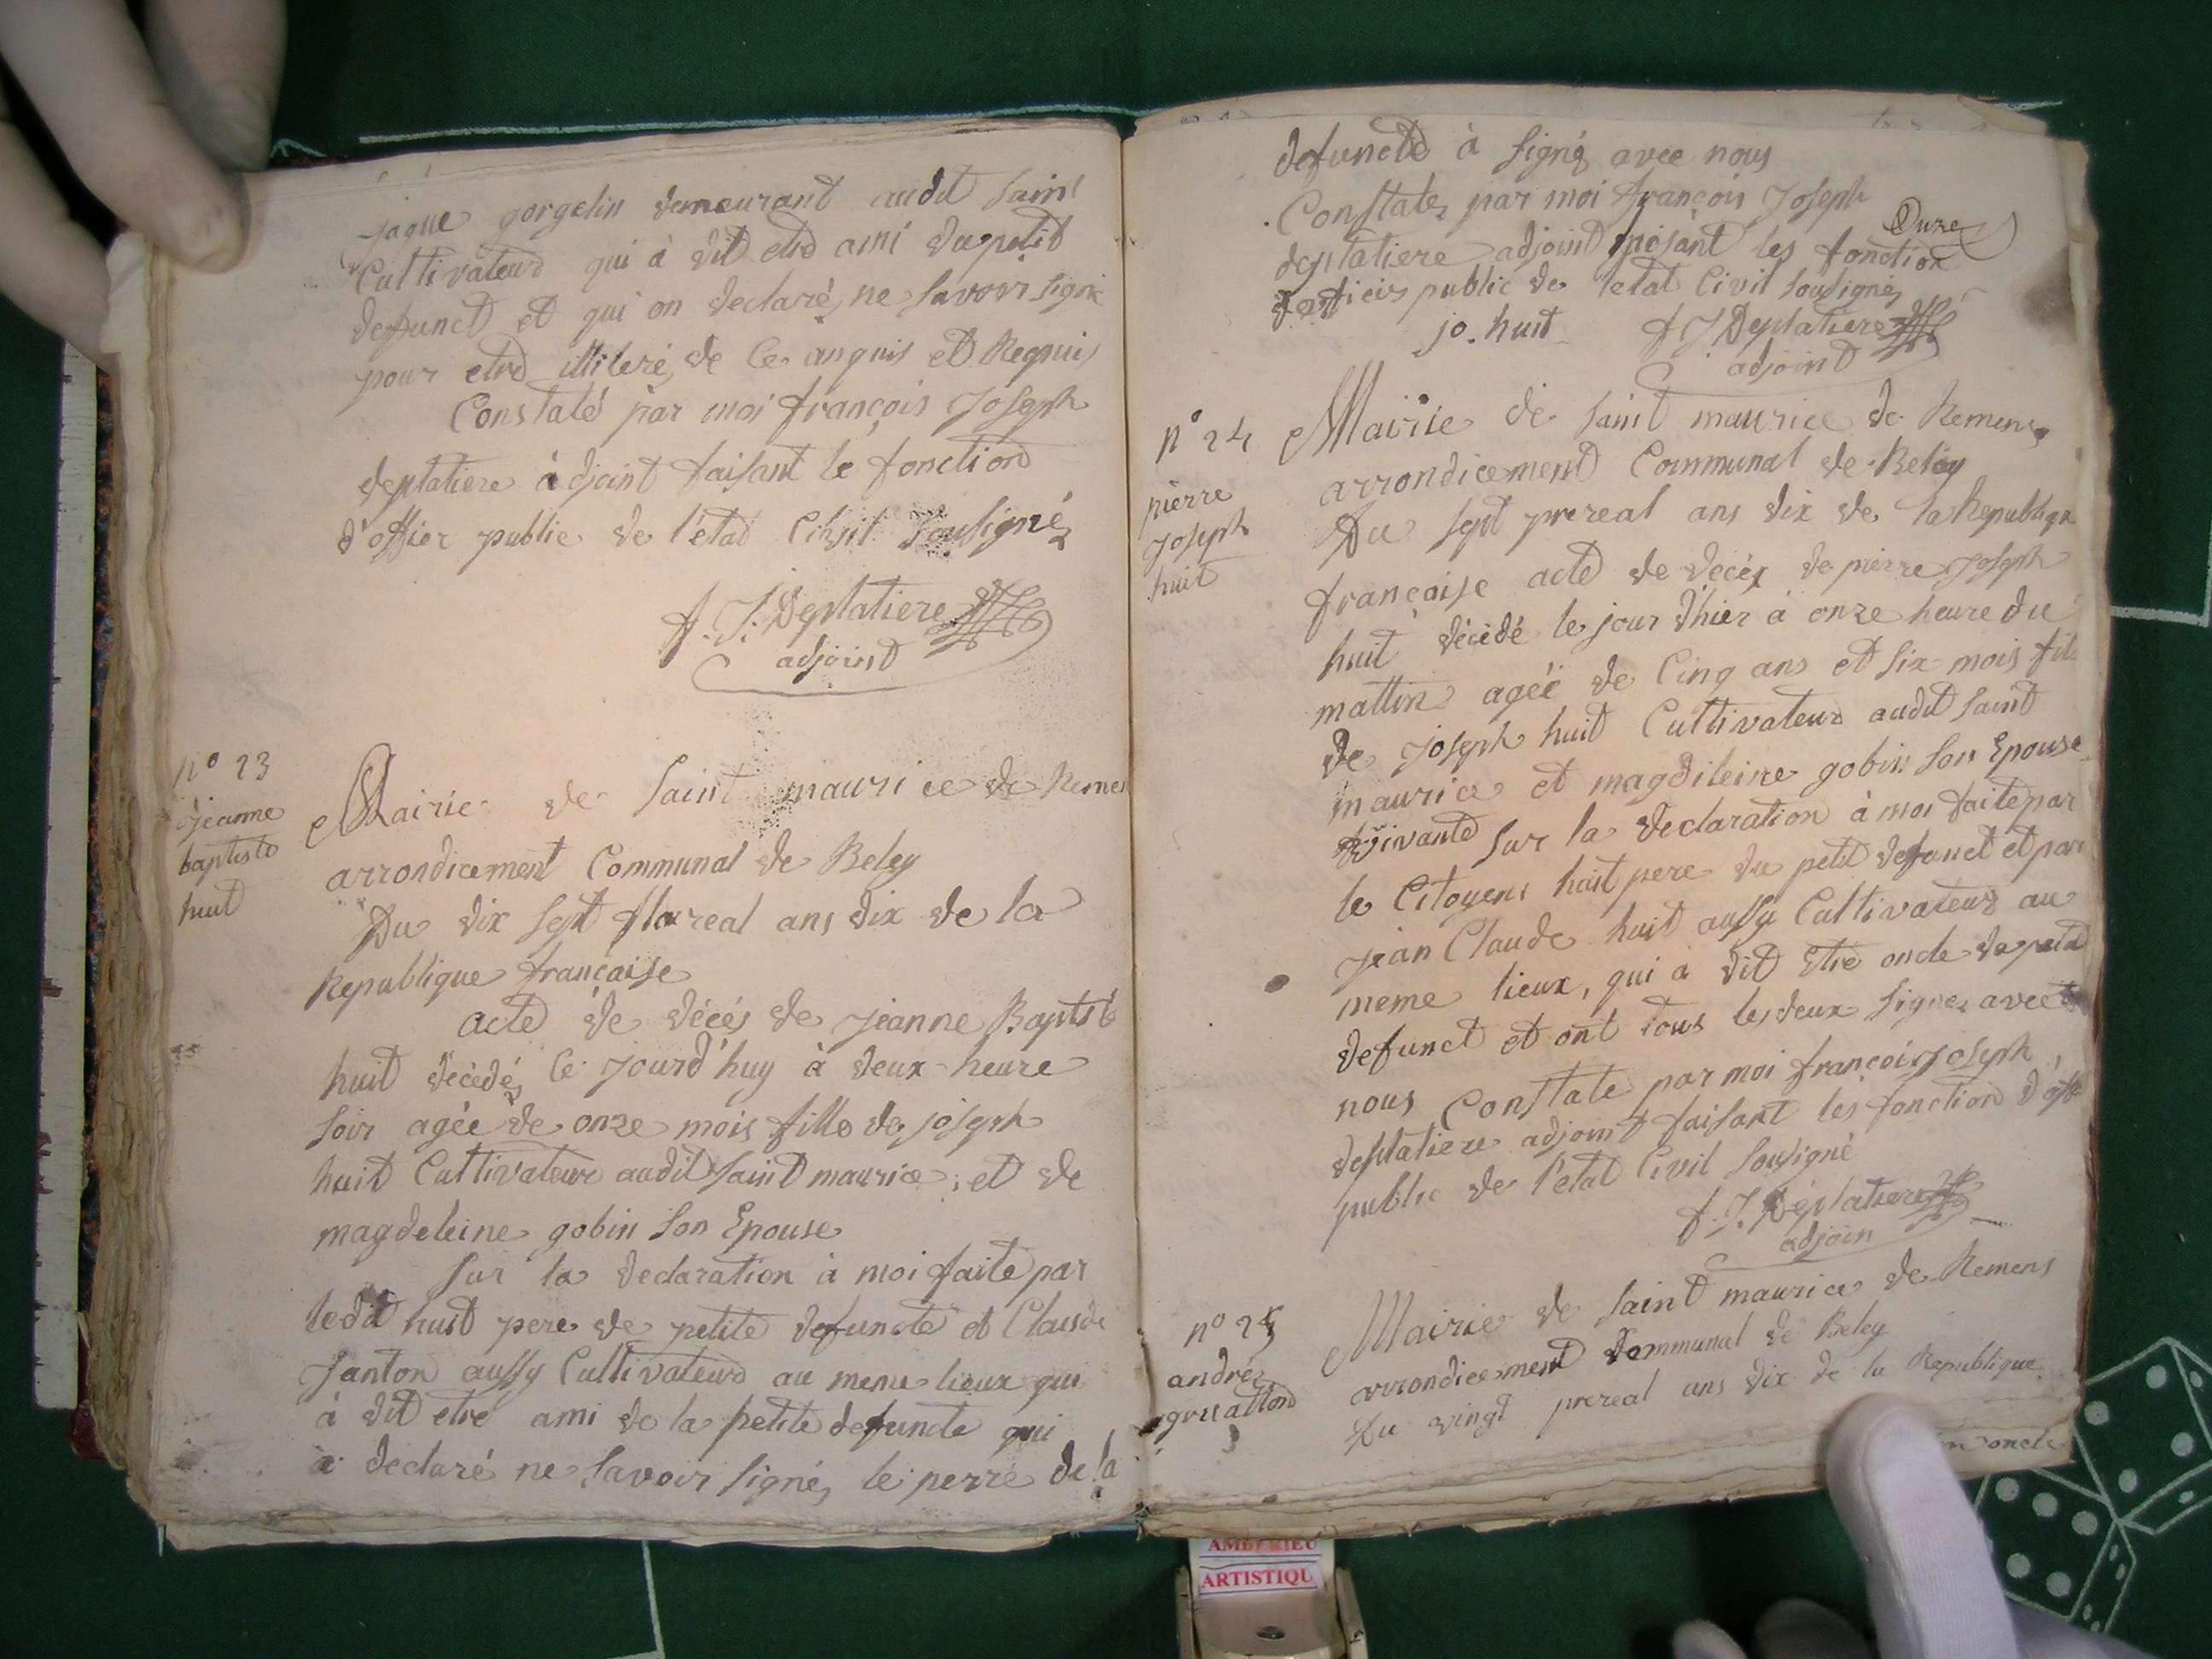 jaque gorgelin demeurant audit Saint
Cultivateur qui à dit etre ami du petit
defunct et qui on declaré ne Savoir signé
pour etre illiteré de Ce anquis et Requis
Constaté par moi françois Joseph
deplatiere adjoint faisant le fonction
d'offier public de l'état Civil Sousigné
f. J. Deplatiere
adjoint
n° 23
jeanne
baptiste
huit
Mairie de Saint maurice de Remen
arrondicement Communal de Beley
Du dix Sept floreal ans dix de la
Republique françaiſe
acte de décés de jeanne Baptiste
huit décédé Ce Jourd'huy à deux heure
Soir agée de onze mois fille de joseph
huit Cultivateur audit Saint maurice, et de
magdeleine gobin Son Epouse
Sur la declaration à moi faite par
ledit huit pere de petite defuncte et Claude
Janton aussy Cultivateur au meme lieux qui
à dit etre ami de la petite defuncte qui
a declaré ne Savoir signé, le perre de la
defuncte à signé avec nous
Constate par moi françois Joseph
deplatiere adjoint les fonction
public de letat Civil Sousigné
jo. huit f J Deplatiere
adjoint
n° 24
pierre
Joseph
huit
Mairie de Saint maurice de Remens
arrondicement Communal de Beley
Du sept prereal ans dix de la Republique
françoise acte de décés de pierre Joseph
huit décédé le jour d'hier à onze heure du
mattin agéé de Cinq ans et six mois fils
de Joseph huit Cultivateur audit Saint
maurice et magdileine gobin Son Epouse
Sur la declaration à moi faite par
le Citoyens huit pere du petit defunct et par
jean Claude huit aussy Cultivateur au
meme lieux, qui a dit etre oncle du petit
defunct et ont tous les deux signes avec
nous Constate par moi françois Joseph
deplatiere adjoint faisant les fonction d'off
public de l'état Civil Sousigné
f. J. Déplatiere
adjoin
n° 25
andré
Mairie de Saint maurice de Remens
arrondicement Communal de Beley
Du vingt prereal ans dix de la Republique
oncle
AMBERIEU
ARTISTIQU